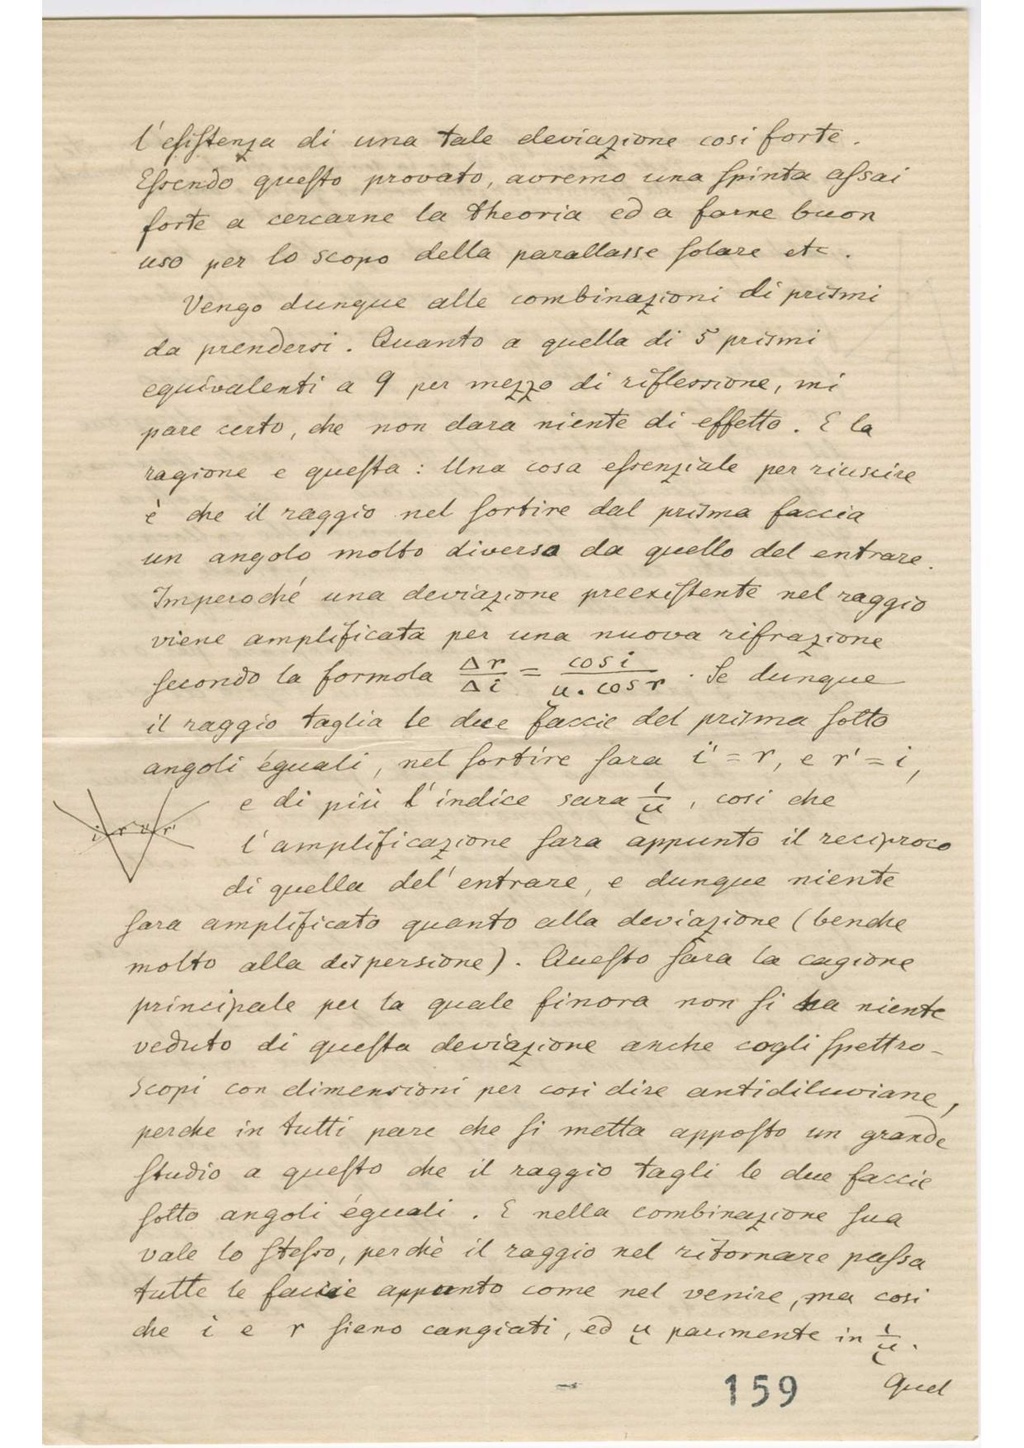 l'esistenza di una tale deviazione cosi forte.
Essendo questo provato, avremo una spinta assai
forte a cercarne la theoria ed a farne buon
uso per lo scopo della parallasse solare etc.
Vengo dunque alle combinazioni di prismi
da prendersi. Quanto a quella di 5 prismi
equivalenti a 9 per mezzo di riflessione, mi
pare certo, che non dara niente di effetto. E la
ragione e questa: Una cosa essenziale per riuscire
è che il raggio nel sortire dal prisma faccia
un angolo molto diverso da quello del entrare.
Imperoché una deviazione preexistente nel raggio
viene amplificata per una nuova rifrazione
secondo la formola Δr/Δi = cos i/μ. cos r. Se dunque
il raggio taglia le due faccie del prisma sotto
angoli éguali, nel sortire sara i' = r, e r' = i,
e di più l'indice sara 1/μ, cosi che
i r i' r'
l'amplificazione sara appunto il reciproco
di quella del'entrare, e dunque niente
sara amplificato quanto alla deviazione (benche
molto alla dispersione). Questo sara la cagione
principale per la quale finora non si ha niente
veduto di questa deviazione anche cogli spettro-
scopi con dimensioni per cosi dire antidiluviane,
perche in tutti pare che si metta apposto un grande
studio a questo che il raggio tagli le due faccie
sotto angoli éguali. E nella combinazione sua
vale lo stesso, perchè il raggio nel ritornare passa
tutte le faccie appunto come nel venire, ma cosi
che i e r sieno cangiati, ed μ parimente in 1/μ.
Quel
159